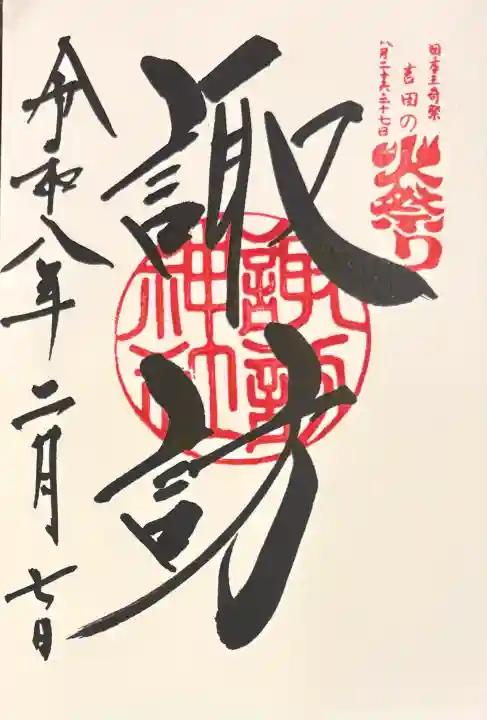 日本三奇祭
八月二十六・二十七日
吉田の
火祭り
諏訪
諏訪
神社
令和八年二月七日